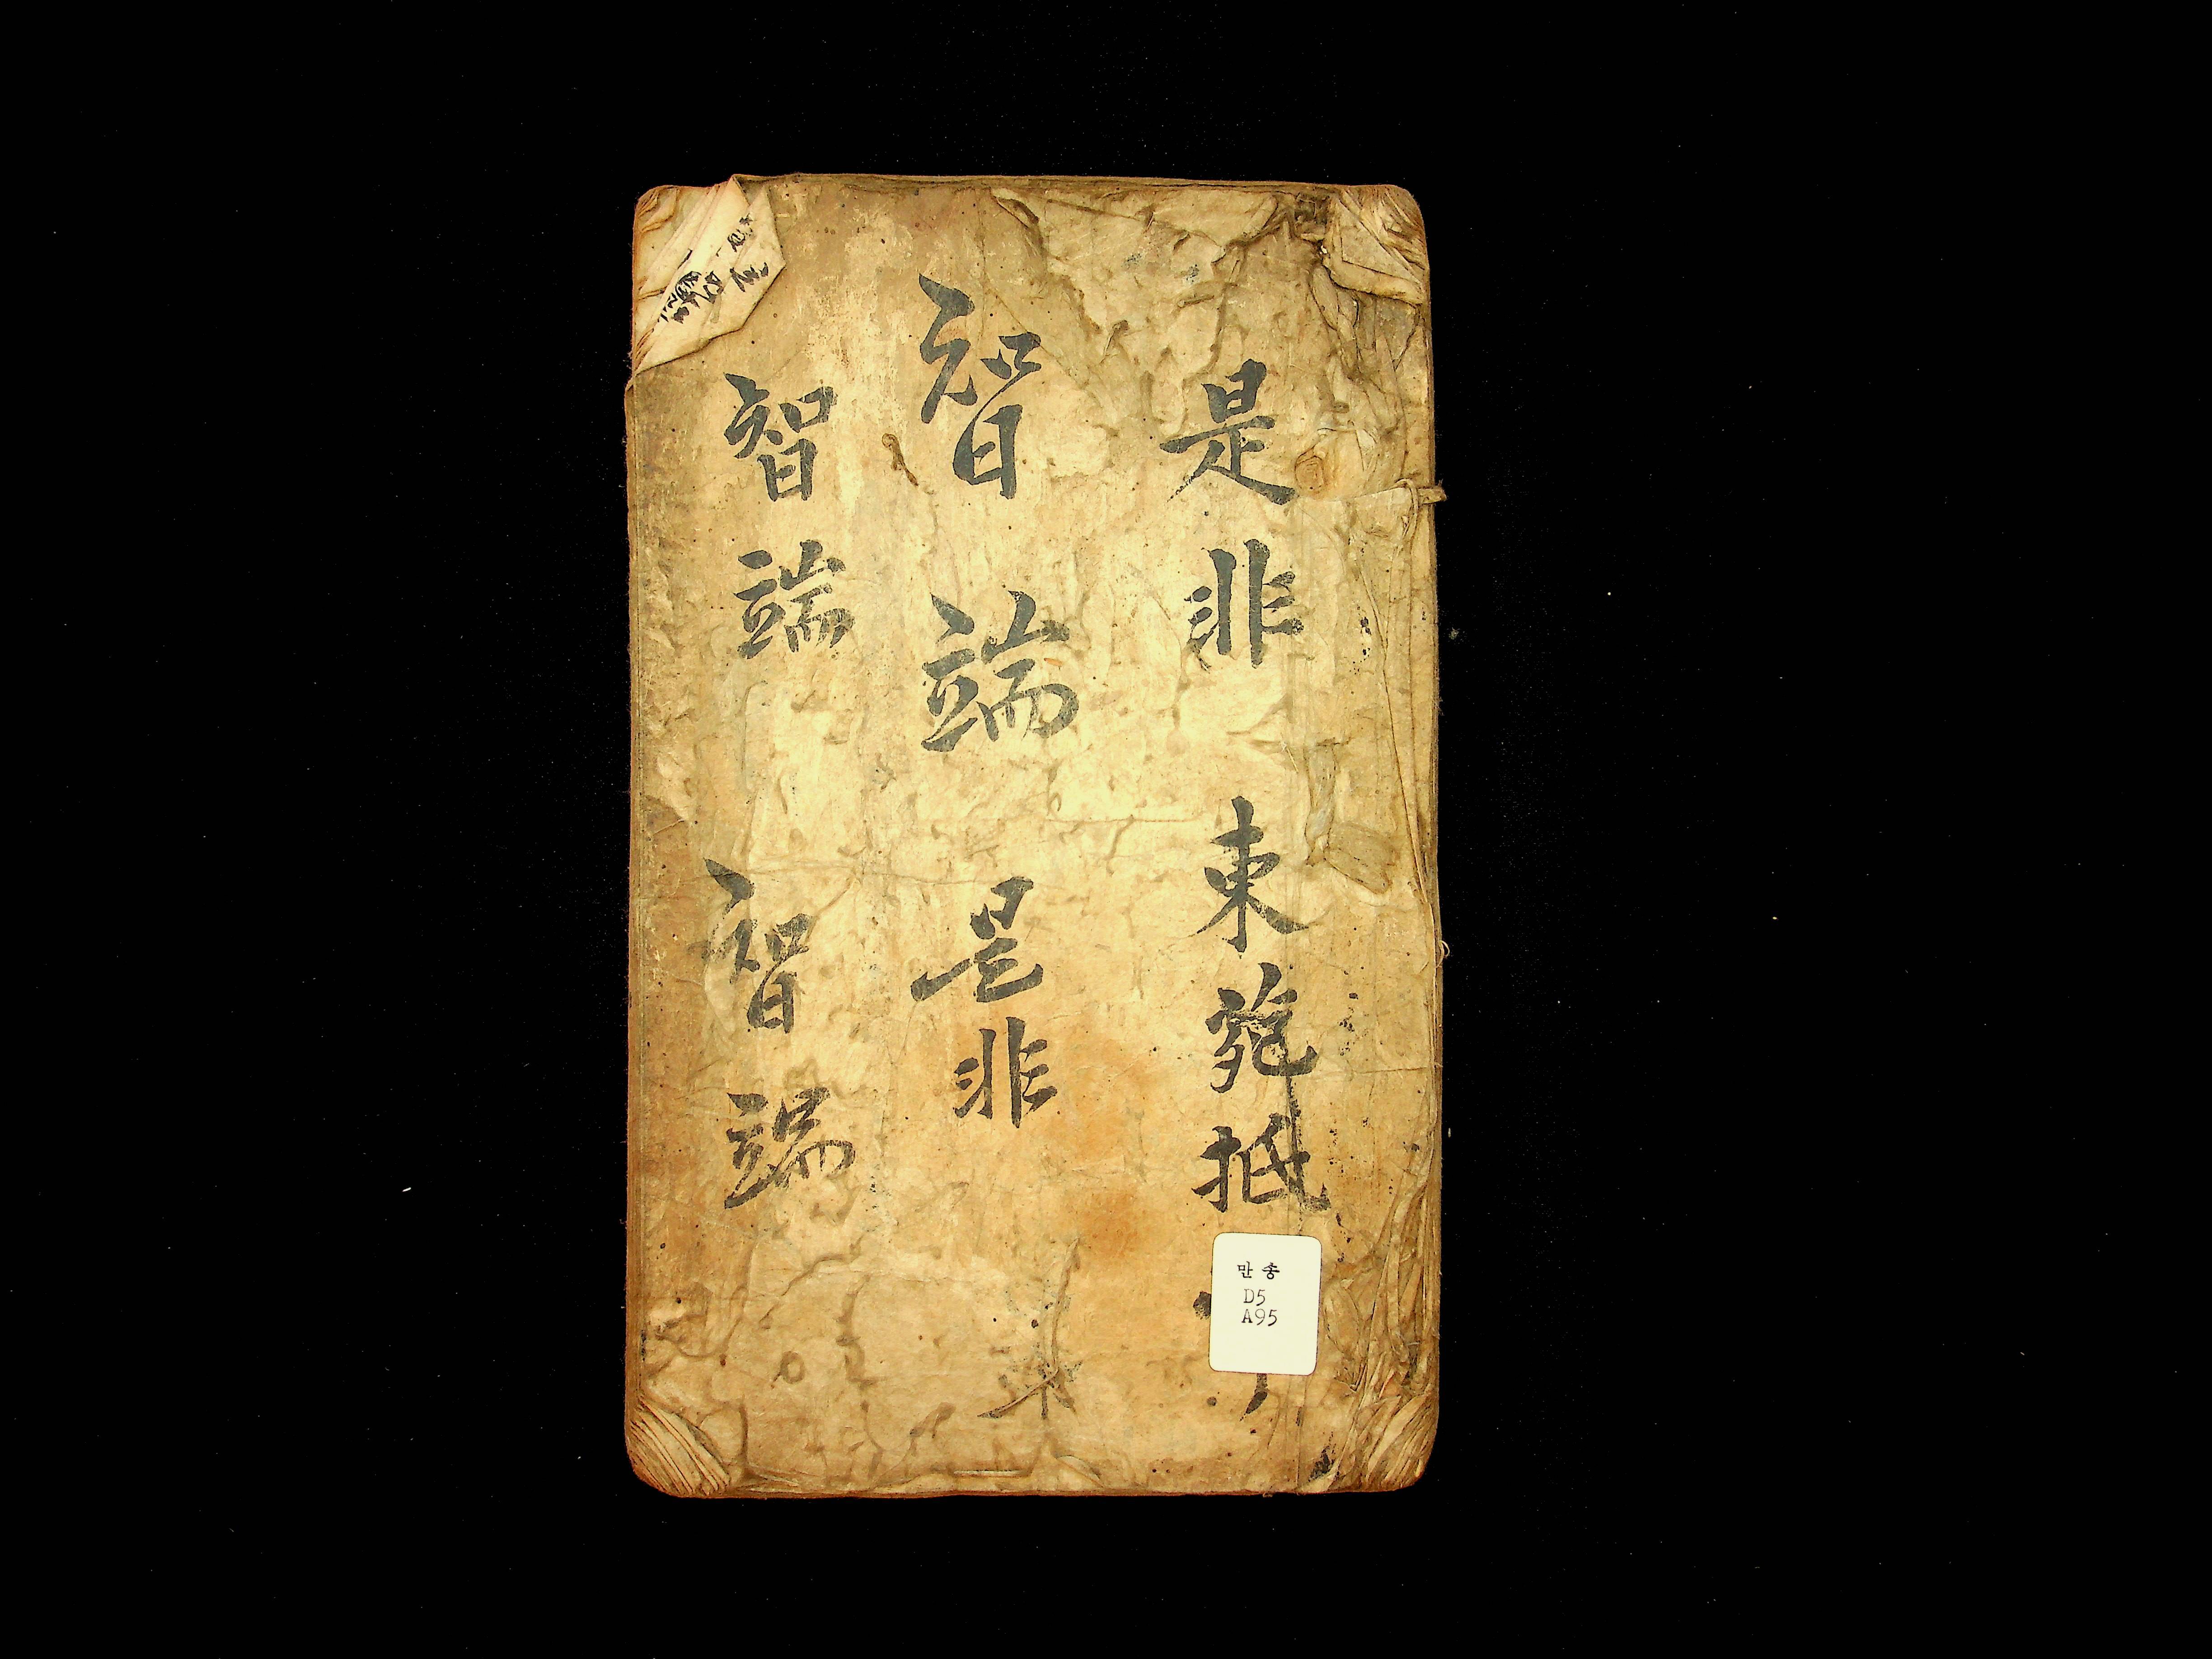 是非 東苑抵
智端 是非
智端 智端
만송
D5
A95